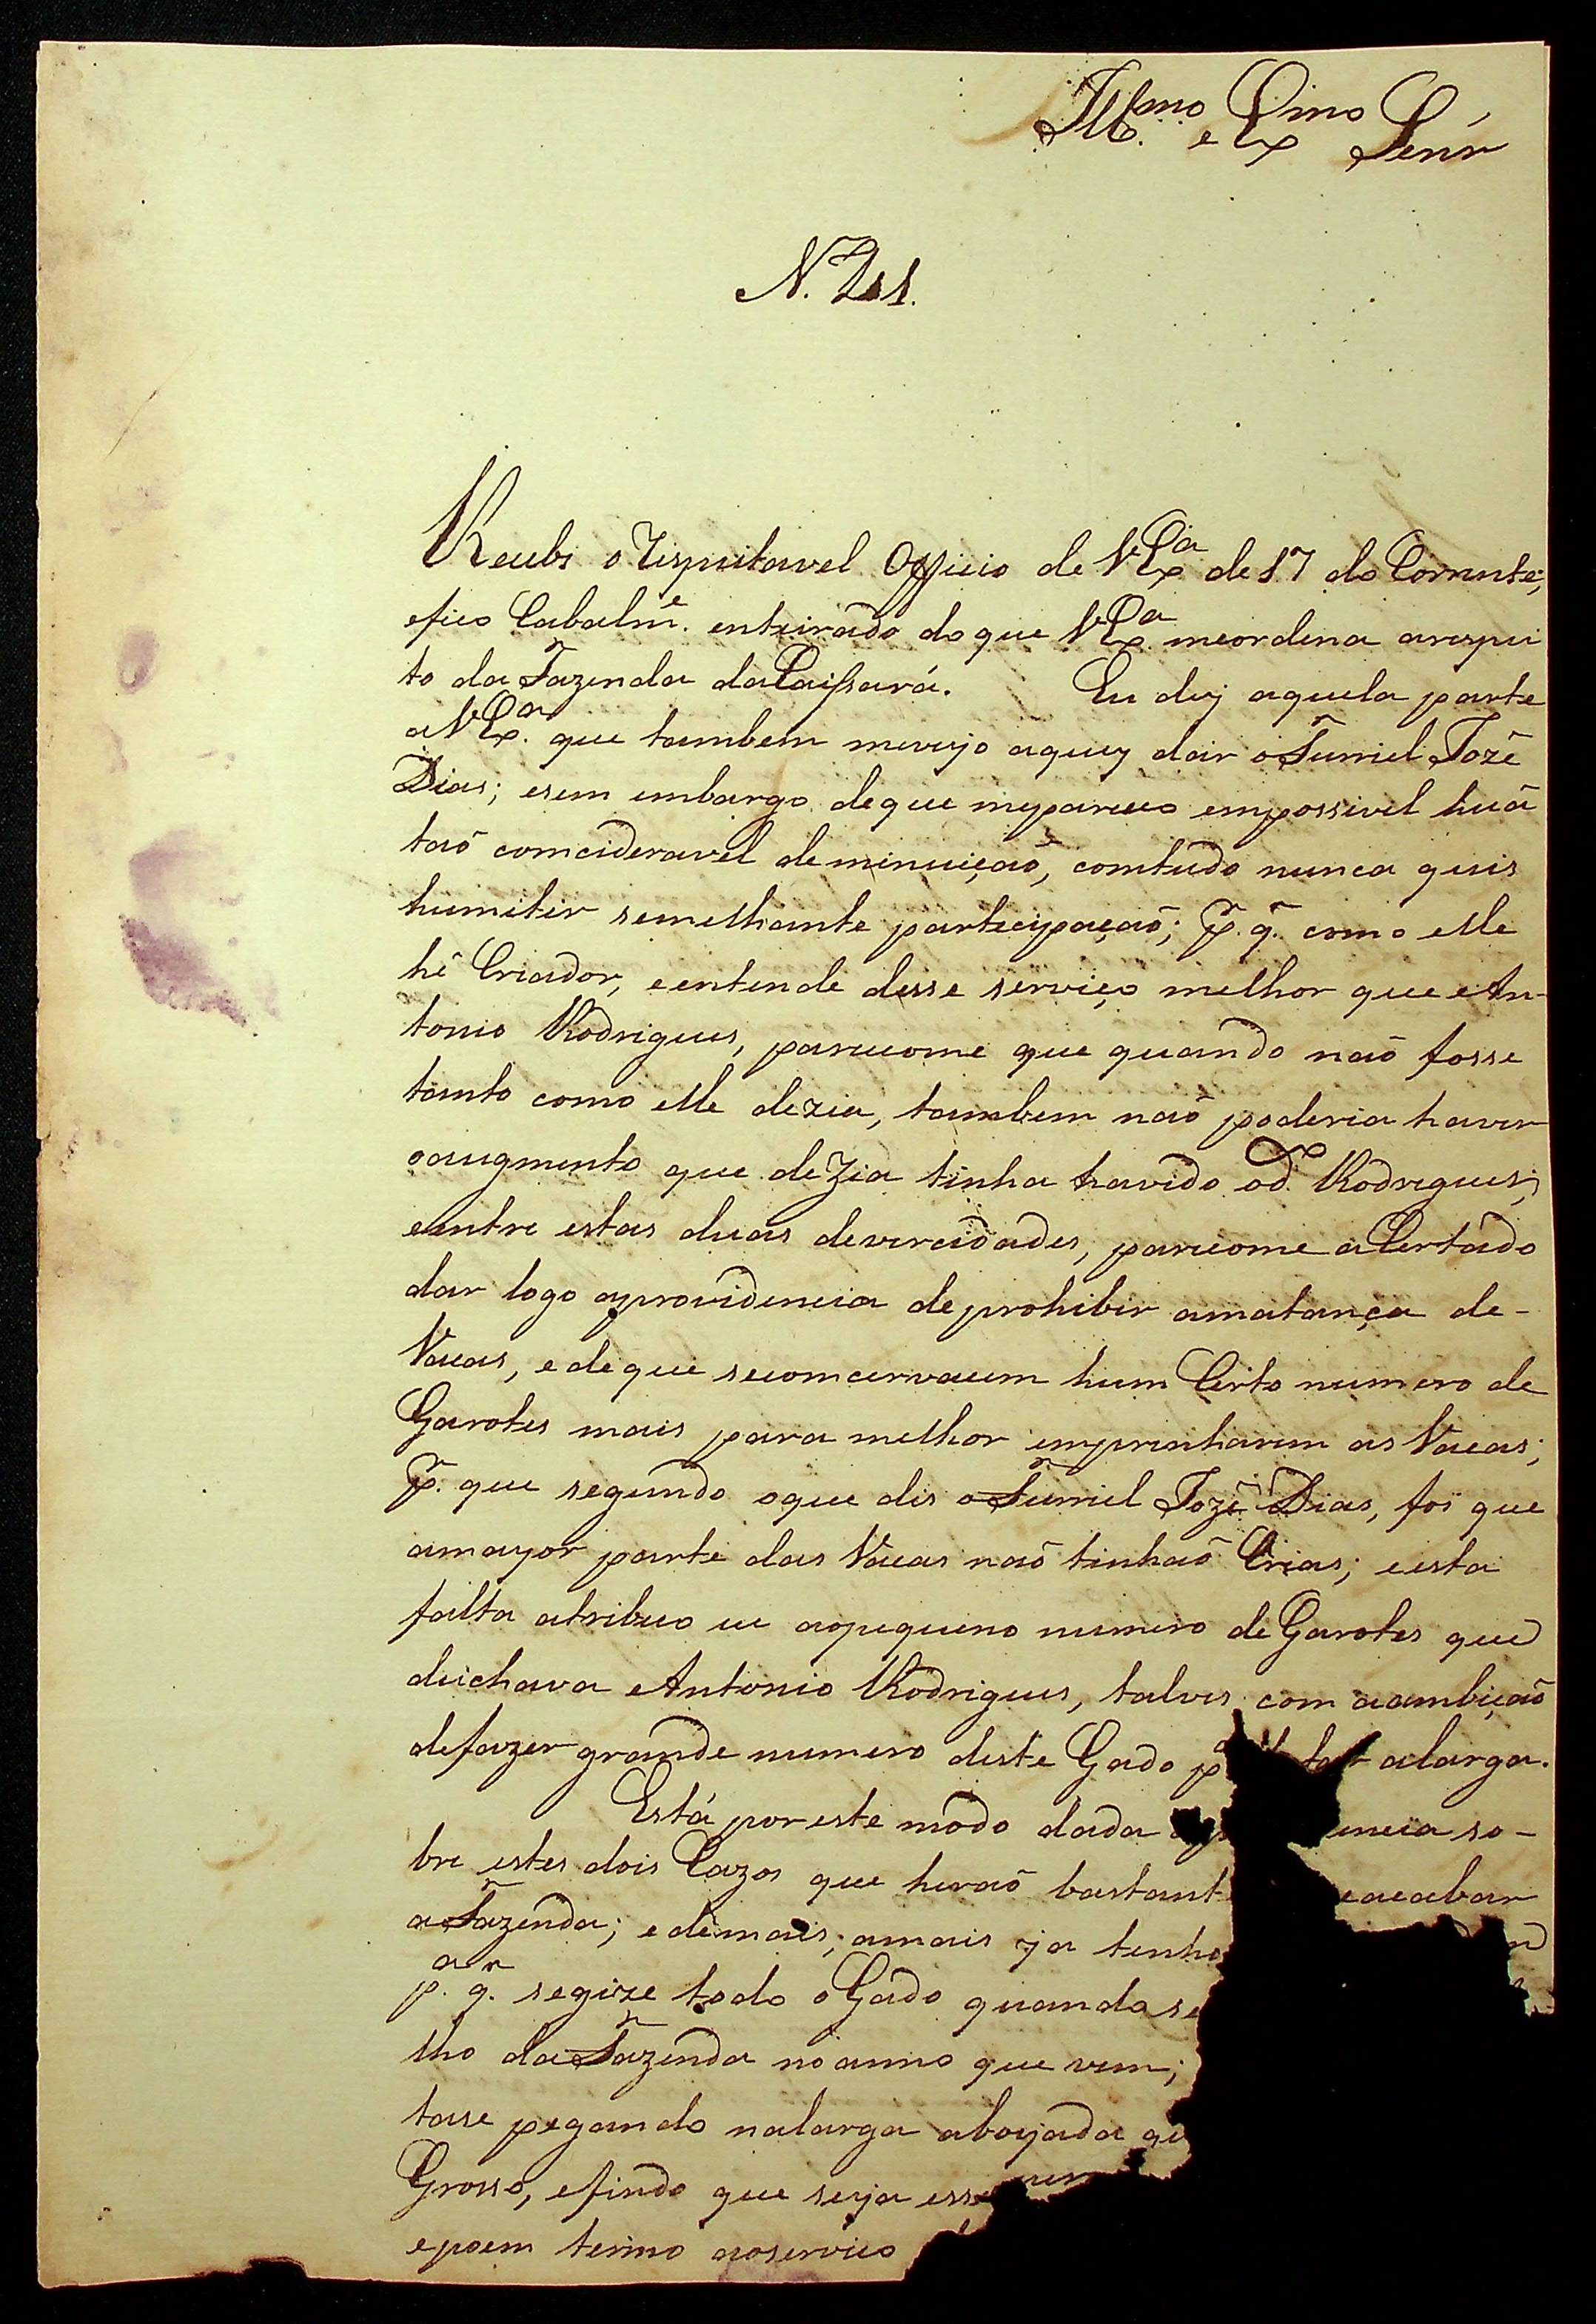 Ill.mo e Ex.mo Senr
N. 211.
Recebi o respeitavel Officio de VEx.a de 17 do Corrente,
e fico Cabalm.e enteirado do que VEx.a me ordena a respei
to da Fazenda da Caissará. Eu dei aquela parte
a VEx.a que tambem me veyo aquy dar o Furriel Jozê
Dias; e sem embargo de que me pareceo empossivel huã
taõ comcideravel deminuiçaõ, comtudo nunca quis
humitir semelhante partecipaçaõ; p.r q. como elle
hê Criador, e entende desse serviço melhor que An-
tonio Rodrigues, pareceome que quando naõ fosse
tanto como elle dezia, tambem naõ poderia haver
o augmento que dezia tinha havido o d.o Rodrigues;
e entre estas duas devercidades, pareceome aCertado
dar logo a providencia de prohibir a matança de-
Vacas, e de que se comcervacem hum Certo numero de
Garotes mais para melhor emprenharem as Vacas;
p.r que segundo o que dis o Furriel Jozê Dias, foi que
a mayor parte das Vacas naõ tinhaõ Crias; e esta
falta atribuo eu ao pequeno numero de Garotes que
deichava Antonio Rodrigues, talves com a ambiçaõ
de fazer grande numero deste Gado p a larga.
Está por este modo dada encia so-
bre estes dois Cazos que heraõ bastant acabar
a Fazenda; e demais, amais ja tenho
p.a q. se gize todo o Gado quando se
lho da Fazenda no anno que vem;
tase pegando na larga a boyada qu
Grosso, e findo que seja esse
e poem termo ao servico